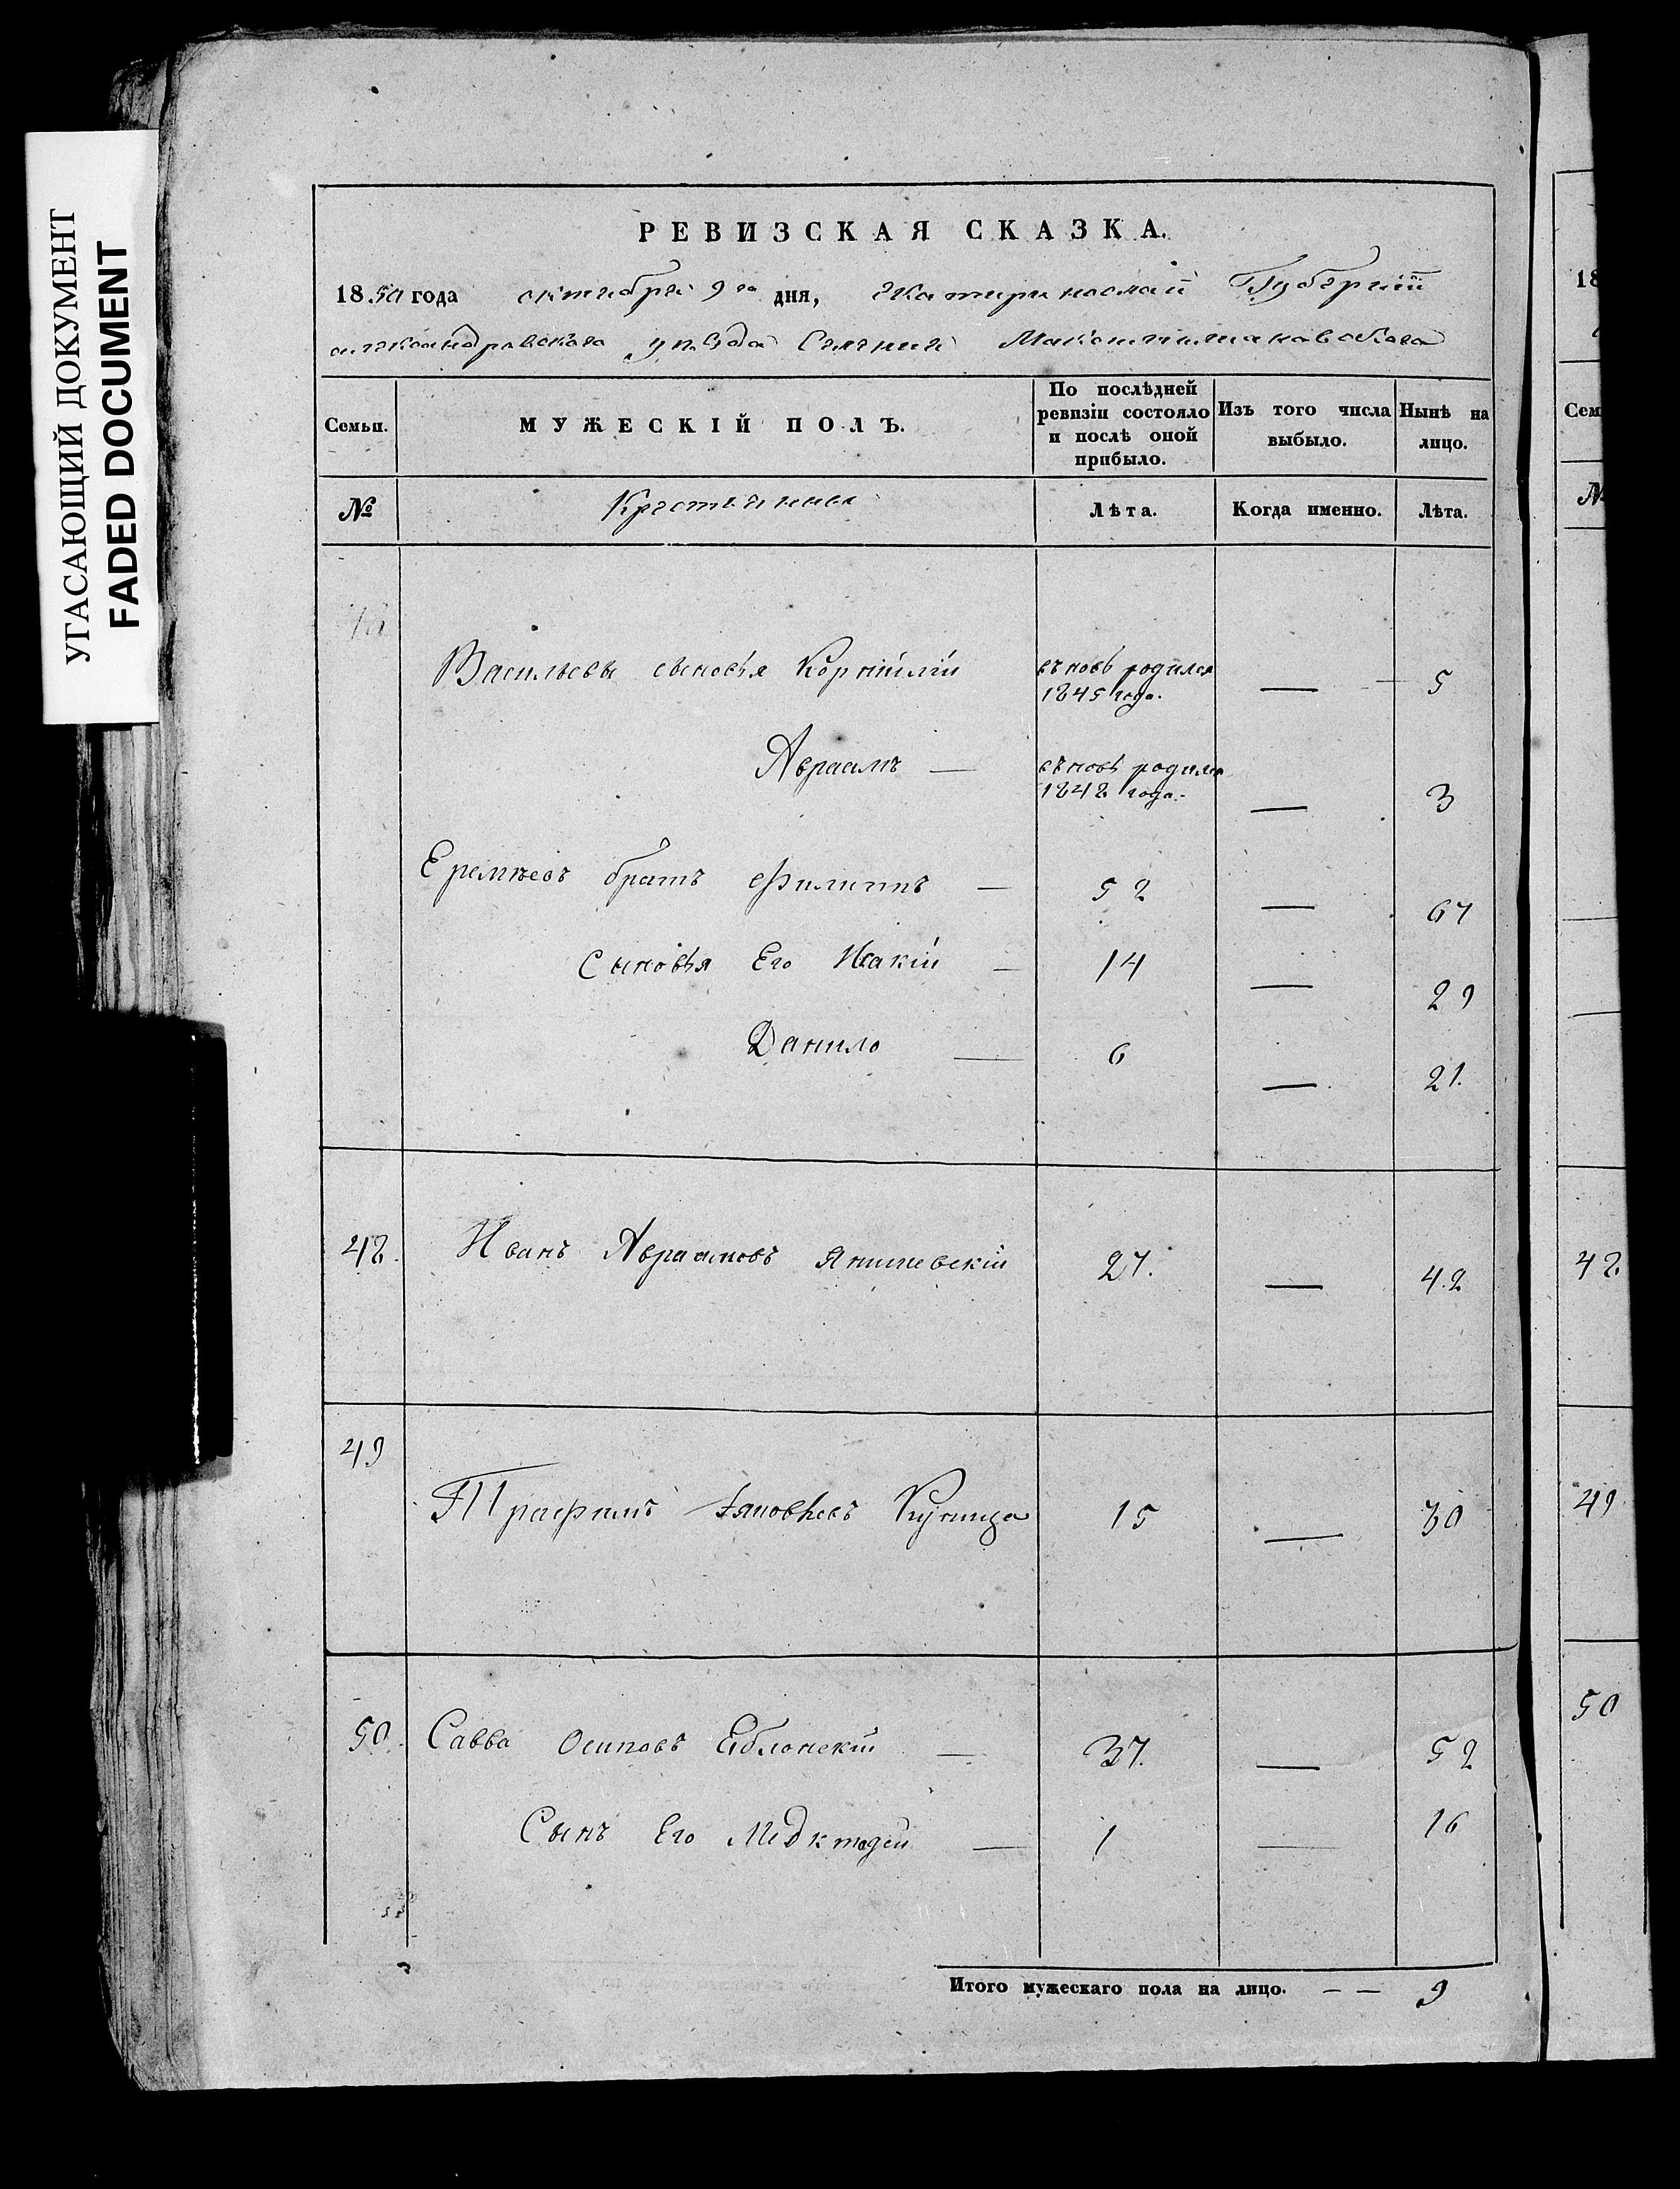 УГАСАЮЩИЙ ДОКУМЕНТ
FADED DOCUMENT
РЕВИЗСКАЯ СКАЗКА.
1850 года октября 9го дня, Екатеринославской Губернии
александровского уезда Селения
Семьи. МУЖЕСКІЙ ПОЛЪ. По послѣдней ревизіи состояло и послѣ оной прибыло. Изъ того числа выбыло. Нынѣ на лицо.
№ Крестьянинъ Лѣта. Когда именно. Лѣта.
Васильевы сыновья Корнилій вновь родился 1845 года. — 5
Авраамъ — вновь родился 1848 года. — 3
Еремѣевъ братъ Филиппъ — 52 — 67
Сыновья Его Исакій — 14 — 29
Данило — 6 — 21.
48. Иванъ Авраамовъ Янишевскій 27. — 42
49 Трафимъ Куница 15 — 30
50. Савва Осиповъ Яблонскій — 37. — 52
Сынъ Его — 1 — 16
Итого мужескаго пола на лицо. — — 9
18
Сем
№
48
49
50